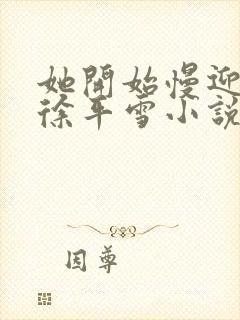 她開始慢迎
徐平雪小說
因尊